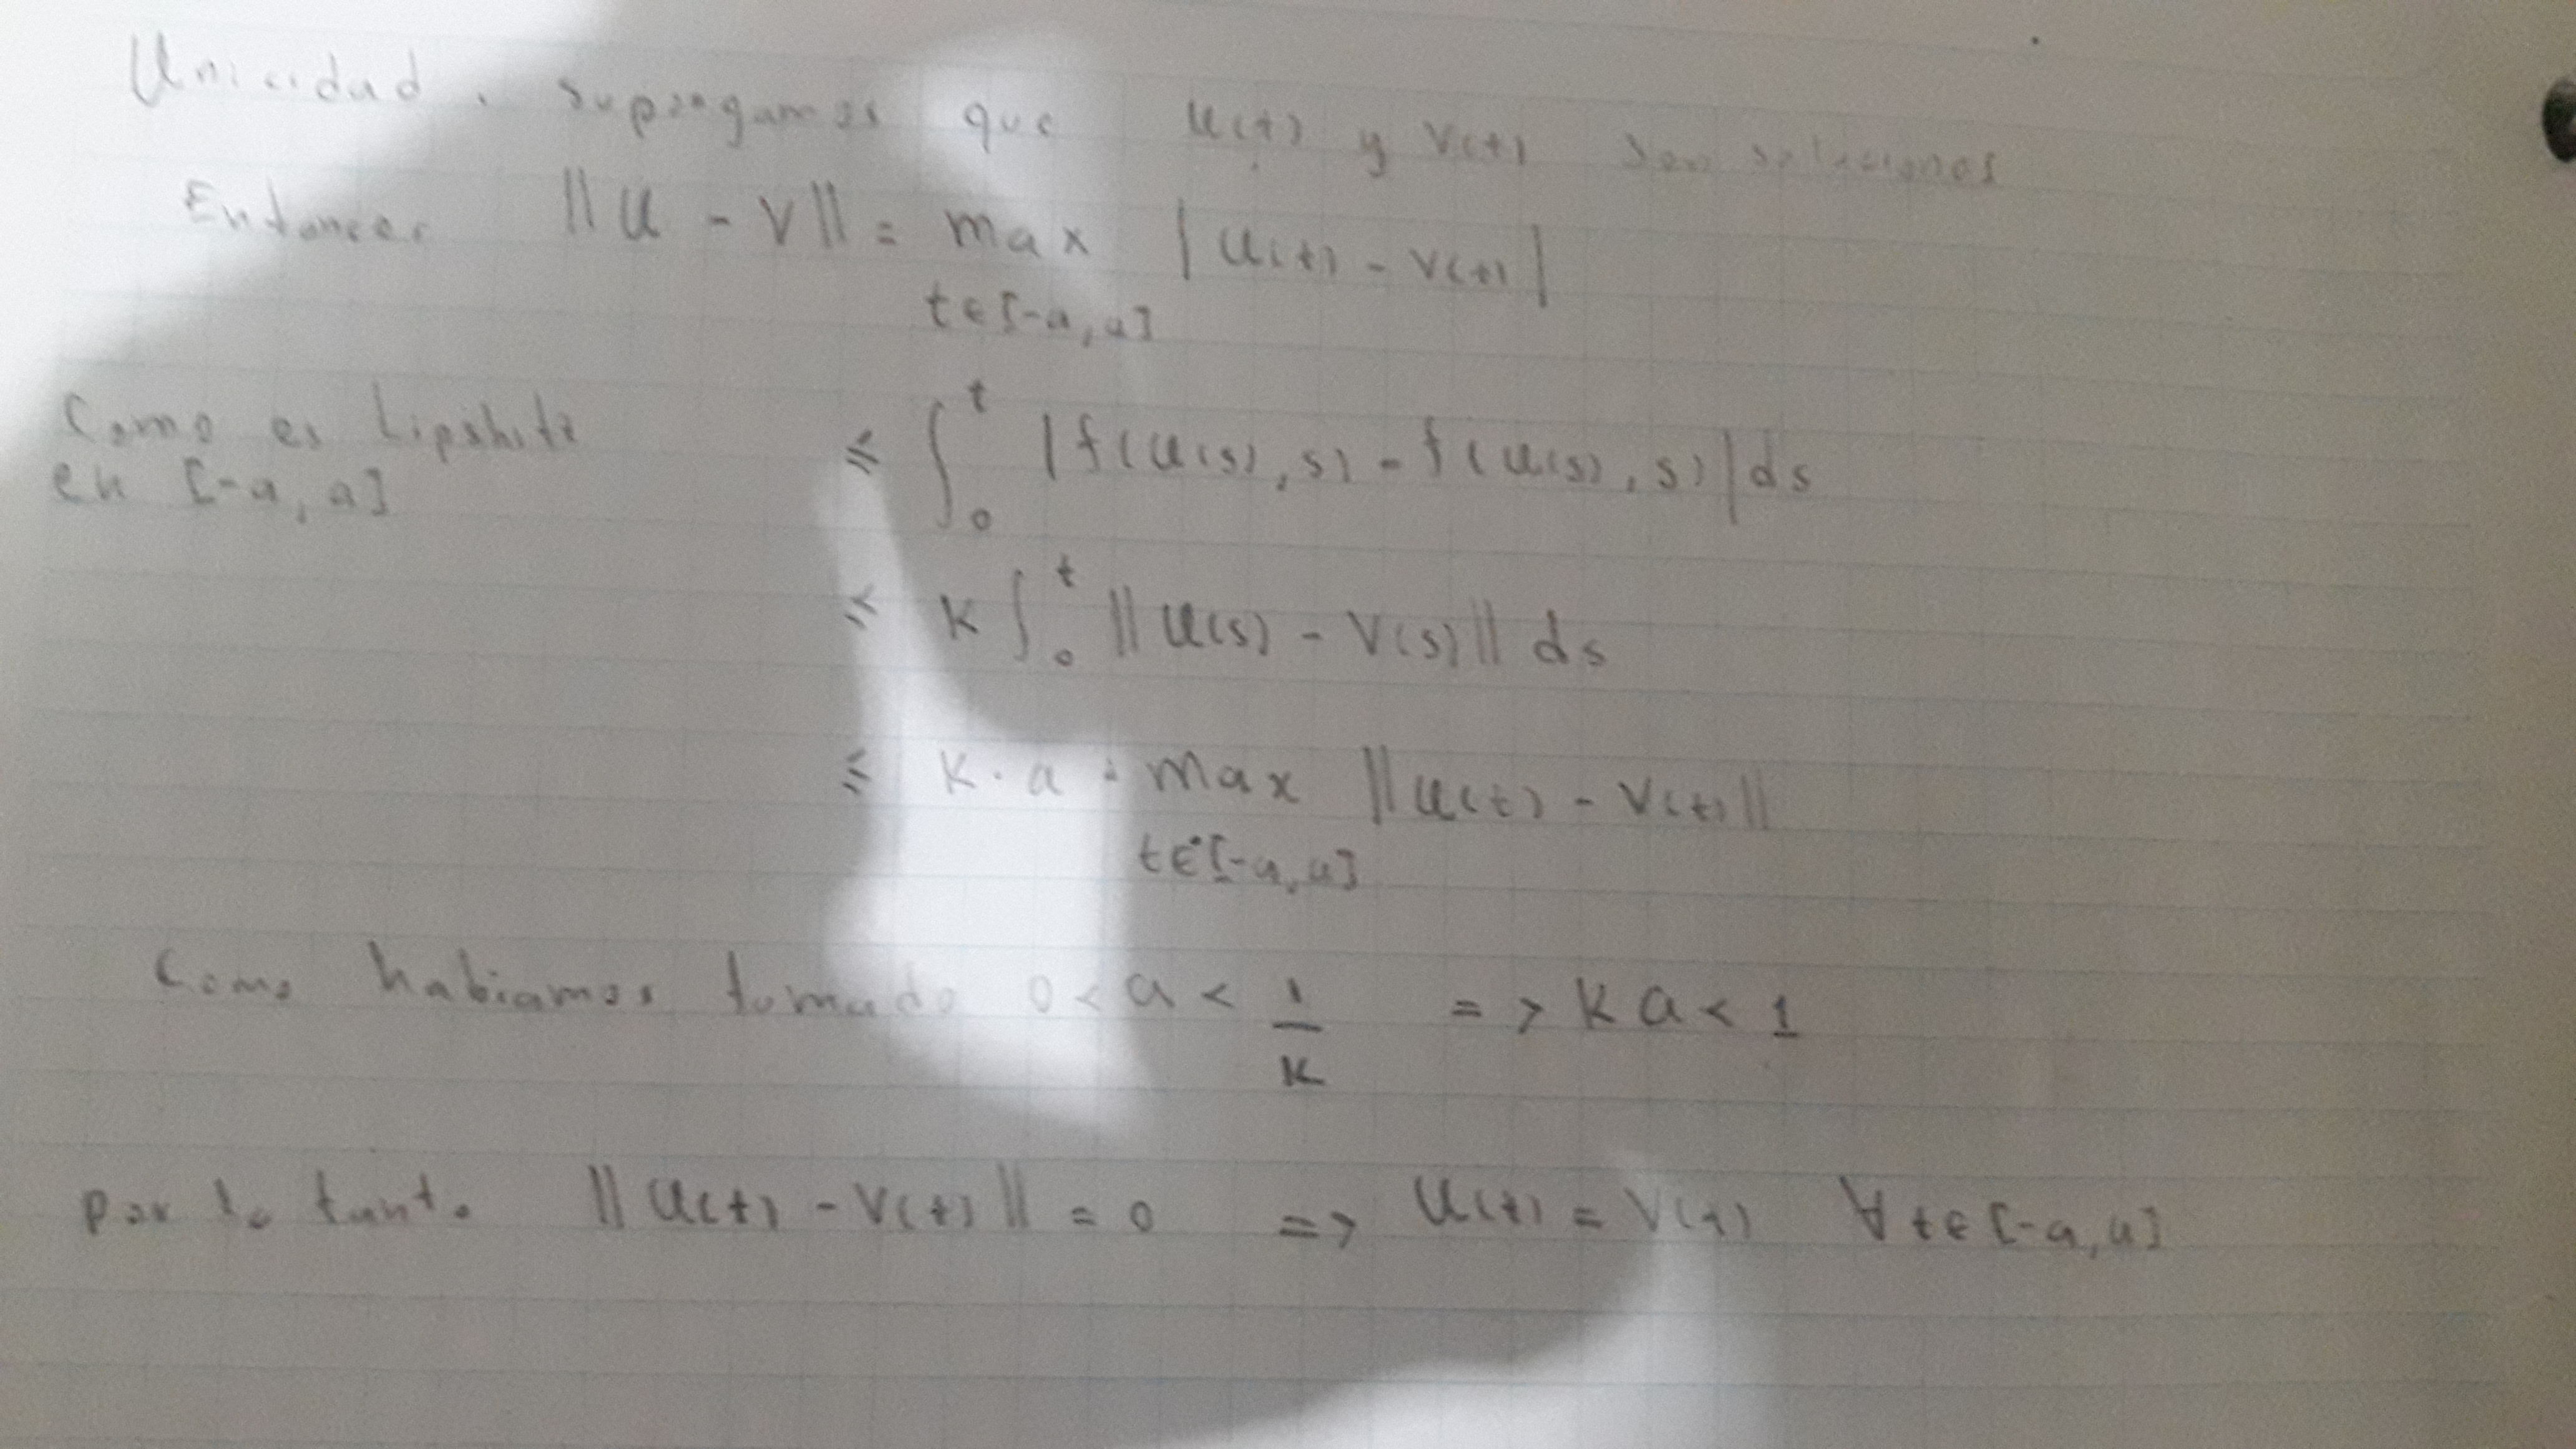 Unicidad. supongamos que u(t) y v(t) son soluciones
Entonces ||u - v|| = max |u(t) - v(t)|
t∈[-a,a]
Como es Lipshitz ≤ ∫₀ᵗ |f(u(s),s) - f(u(s),s)|ds
en [-a,a]
≤ K ∫₀ᵗ ||u(s) - v(s)|| ds
≤ K·a · max ||u(t) - v(t)||
t∈[-a,a]
Como habiamos tomado 0 < a < 1/K => Ka < 1
por lo tanto ||u(t) - v(t)|| = 0 => u(t) = v(t) ∀ t∈[-a,a]